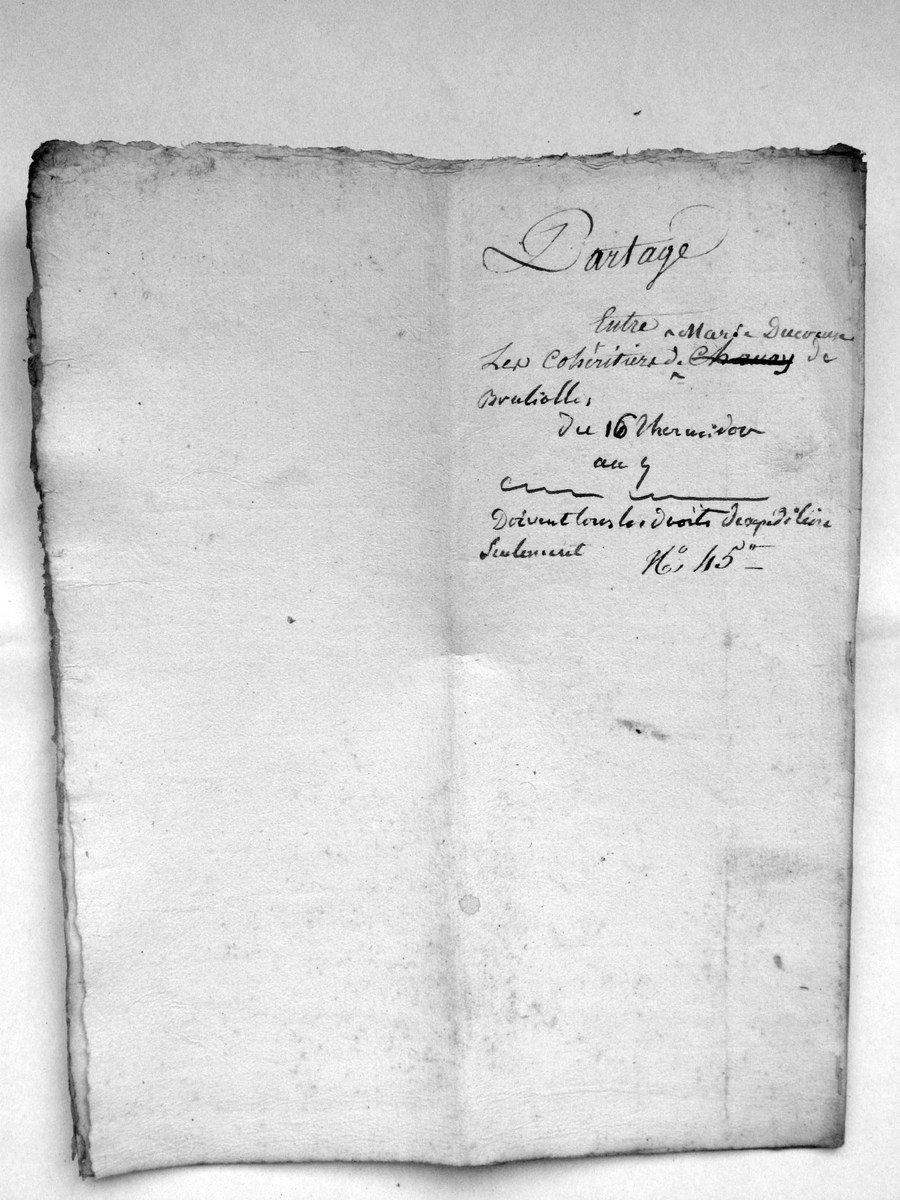 Partage
Entre Marie
Les Cohéritiers de Chauay de
Bruliolles
Du 16 Thermidor
an 5
Doivent tous les droits d'expédition
Seulement
No. 45